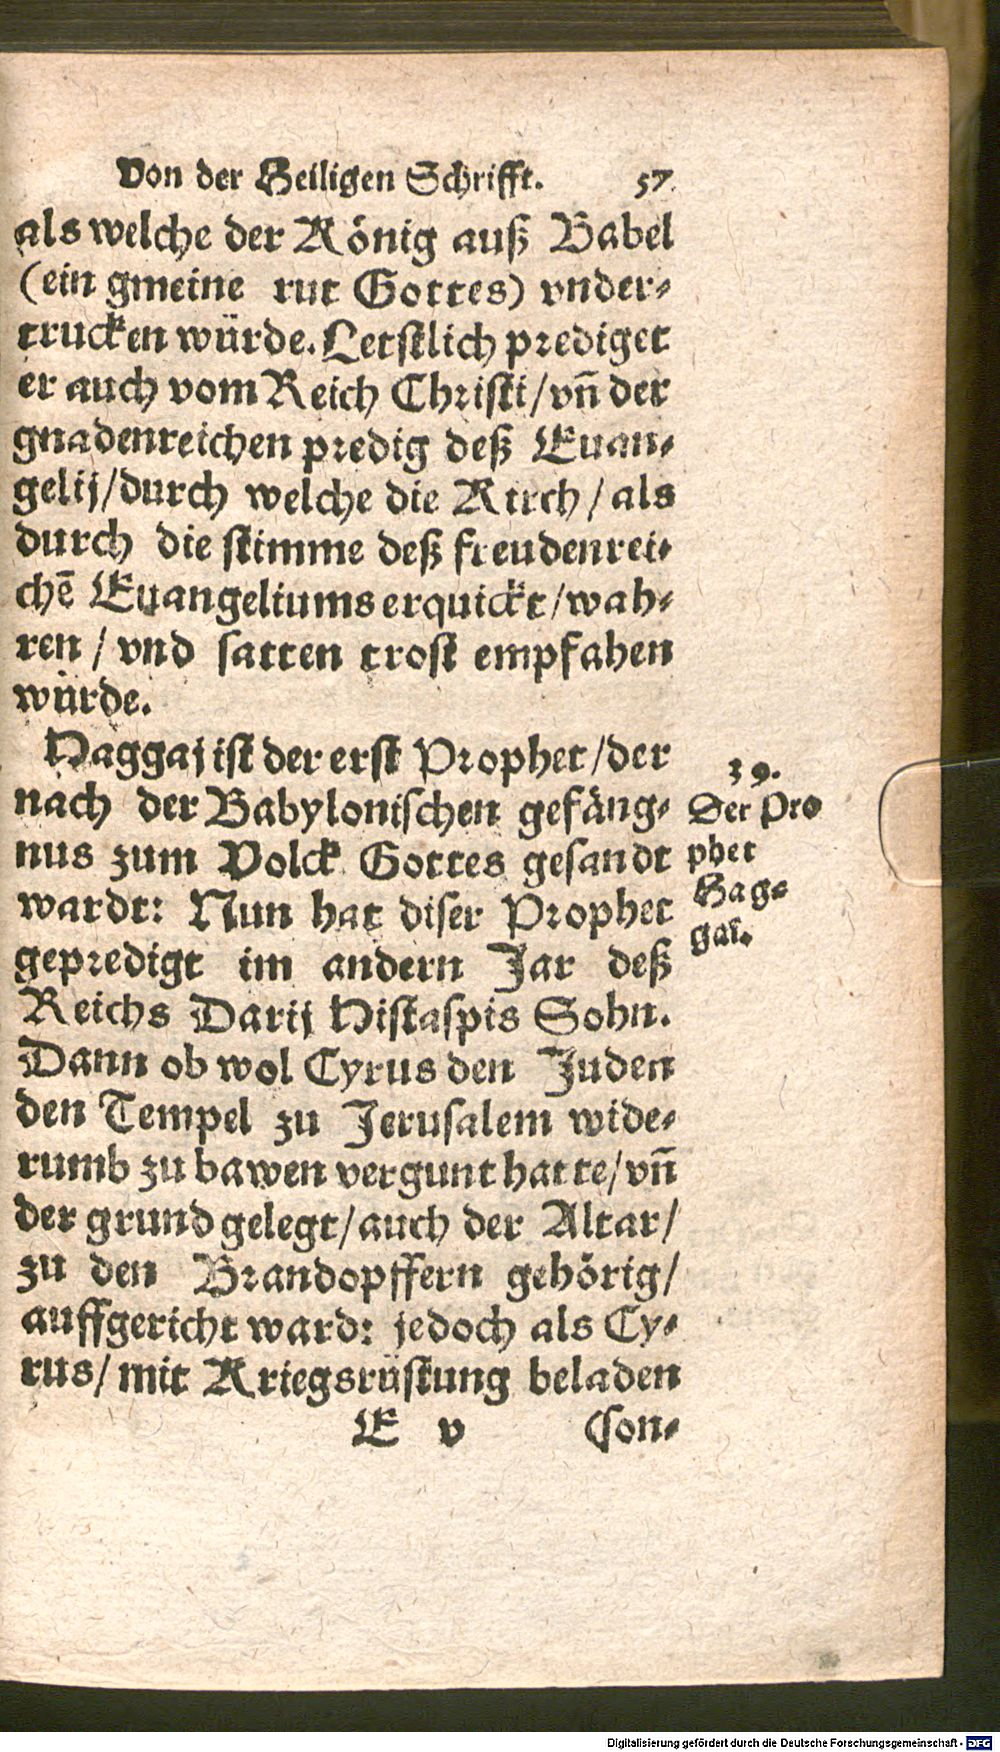 Von der Heiligen Schrifft. 57
als welche der König auß Babel
(ein gmeine rut Gottes) vnder-
trucken würde. Letstlich prediget
er auch vom Reich Christi/vn̄ der
gnadenreichen predig deß Euan-
gelij/durch welche die Kirch/als
durch die stimme deß freudenrei-
chē Euangeliums erquickt/wah-
ren/vnd satten trost empfahen
würde.
Haggaj ist der erst Prophet/der
nach der Babylonischen gefäng-
nus zum Volck Gottes gesandt
wardt: Nun hat diser Prophet
gepredigt im andern Jar deß
Reichs Darij Histaspis Sohn.
Dann ob wol Cyrus den Juden
den Tempel zu Jerusalem wide-
rumb zu bawen vergunt hatte/vn̄
der grund gelegt/auch der Altar/
zu den Brandopffern gehörig/
auffgericht ward: jedoch als Cy-
rus/mit Kriegsrüstung beladen
E v Con-
39.
Der Pro
phet
Hag-
gai.
Digitalisierung gefördert durch die Deutsche Forschungsgemeinschaft - DFG